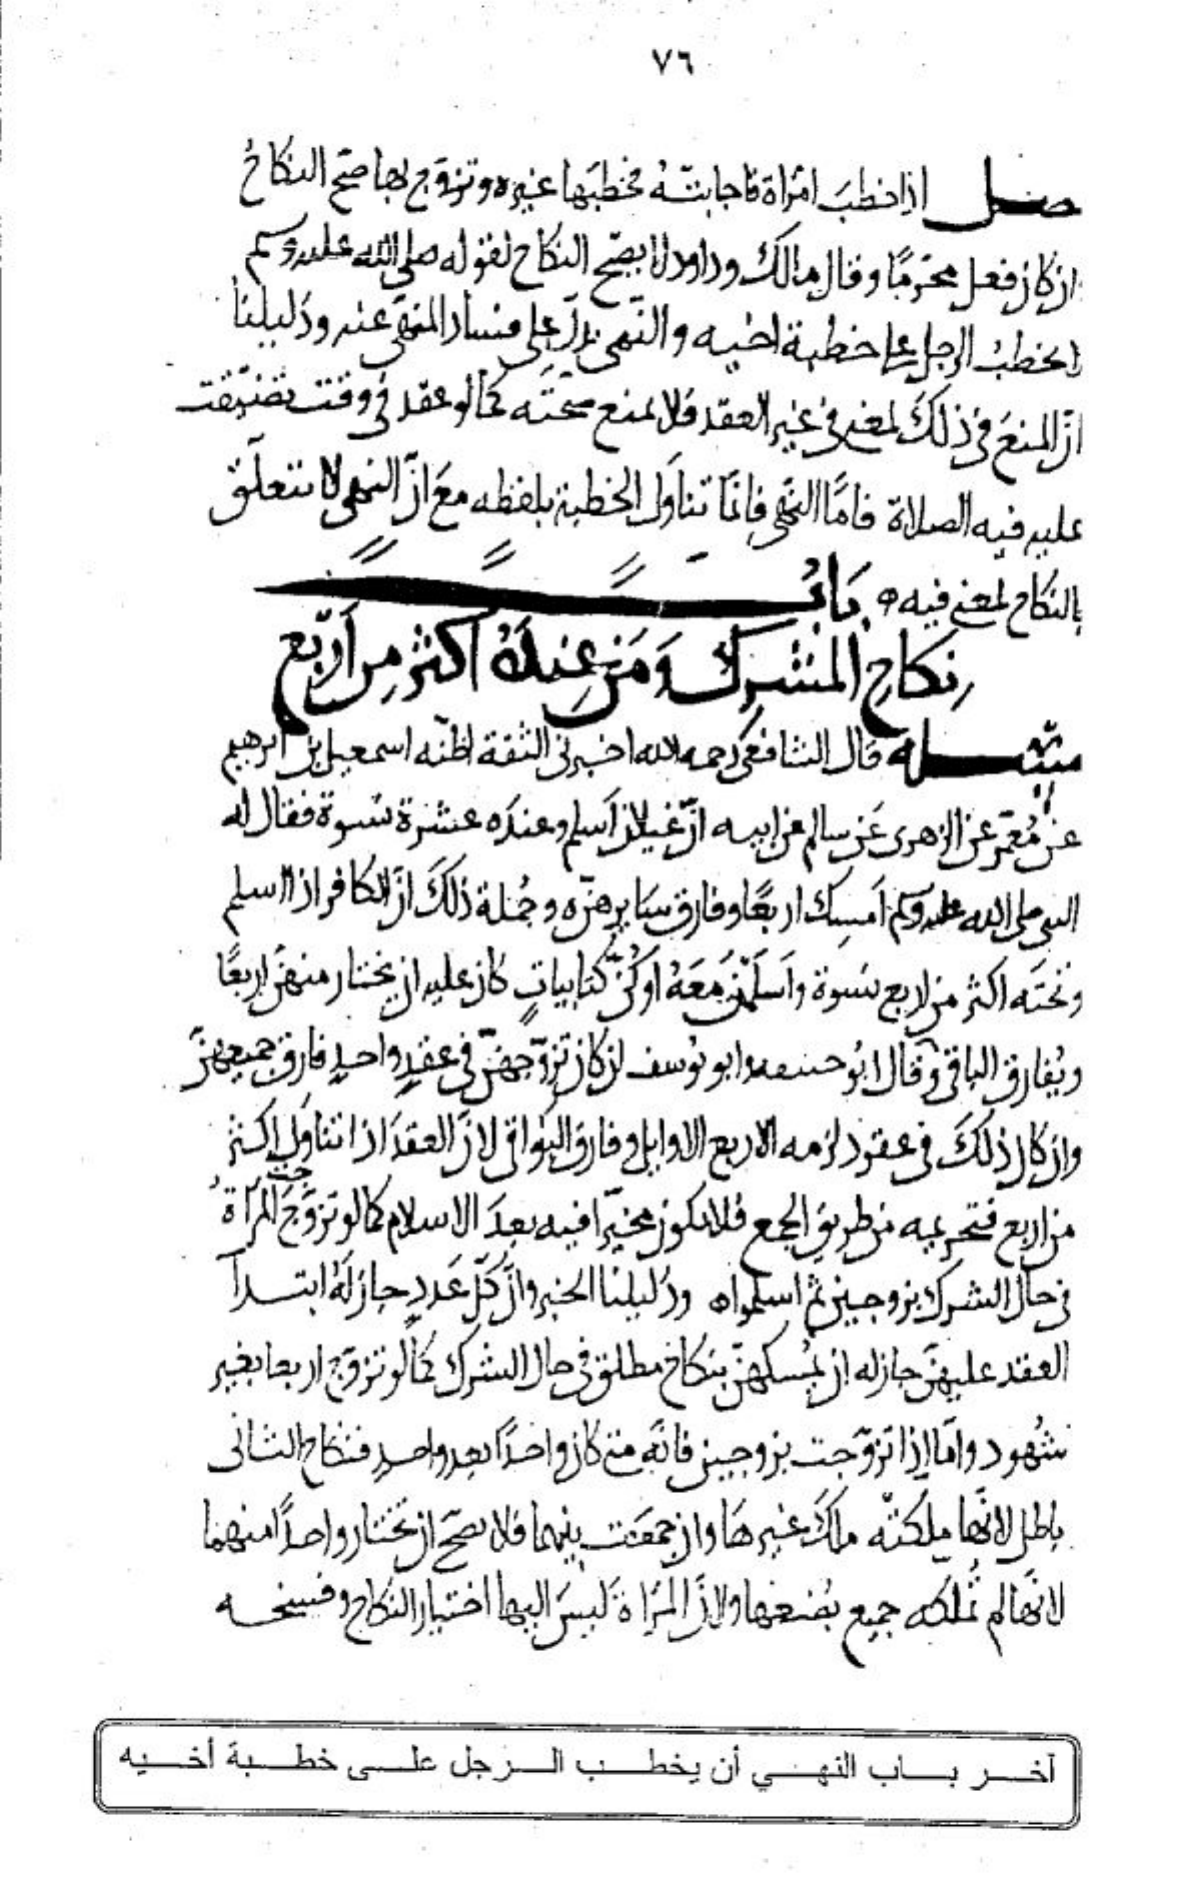 ٧٦
فصل اذا خطبَ امرَاة فاجابتهُ فخطبَها غيره وتزوّج بها صحّ النكاحُ
ان كان فعل محرّمًا وقال مالك وداود لا يصحّ النكاح لقوله صلى الله عليه وسلم
لا يخطبُ الرجل على خطبة اخيه والنّهى يدلّ على فساد المنهى عنه ودَليلنا
انّ المنعَ فى ذلكَ لمعنى فى غير العقد فلا يمنع صحّته كما لو عقد فى وقت تضيّقت
عليه فيه الصلاة فامّا النّهى فانمّا تناوَل الخطبة بلفظه معَ انّ النهى لا يتعلّق
بالنكاح لمعنى فيه ه بَابُ
نِكاحِ المشرك وَمَن عِندَهُ اكثر مِن اَربَع
مسئلة قال الشافعى رحمه الله اخبرنى الثقة اظنّه اسمعيل بن ابرهيم
عن مُعمَر عن الزهرى عَن سالم عن ابيه انّ غيلان اسلم وعندَه عشرة نسوة فقال له
النبى صلى الله عليه وسلم اَمسِك اربعًا وفارق سَايرهنّ ه وجُملة ذلكَ انّ الكافر اذا اسلم
وتحتَه اكثر من اربع نسوة واَسلَمنَ مَعَهُ او كُنّ كتابياتٍ كان عليه ان يختار منهنّ اربعًا
ويُفارق الباقى وقال ابُو حنيفه وابو يُوسف ان كان تزوّجهنّ فى عقدٍ واحدٍ فارق جميعهنّ
وان كان ذلكَ فى عقود لزمه الاربع الاوايل وفارق البَواقى لانّ العقدَ اذا تناوَل اكثر
من اربع فتحريمه من طريق الجمع فلا يكون مخيّرًا فيه بعدَ الاسلام كما لو تزوّجَت المرآةُ
فى حال الشرك بزوجين ثم اسلمواه ودَليلنا الخبر وانّ كلّ عَددٍ جاز لَهُ ابتدآ
العقد عليهنّ جاز له ان يُمسكهنّ بنكاح مطلق فى حال الشرك كما لو تزوّج اربعا بغير
شهُود وامّا اذا تزوّجت بزوجين فانّه متى كان واحدًا بعد واحدٍ فنكاح الثانى
باطل لانّها ملّكتّه ملكَ غيرهَا وان جمعَت بينهما فلا يصحّ ان تختار واحدًا منهما
لانّها لم تُملّكه جميع بُضعها ولانّ المرَاة لَيسَ اليها اختيار النكاح وفسخه
آخــر بــاب النهــي أن يخطــب الــرجل علــى خطــبة أخــيه